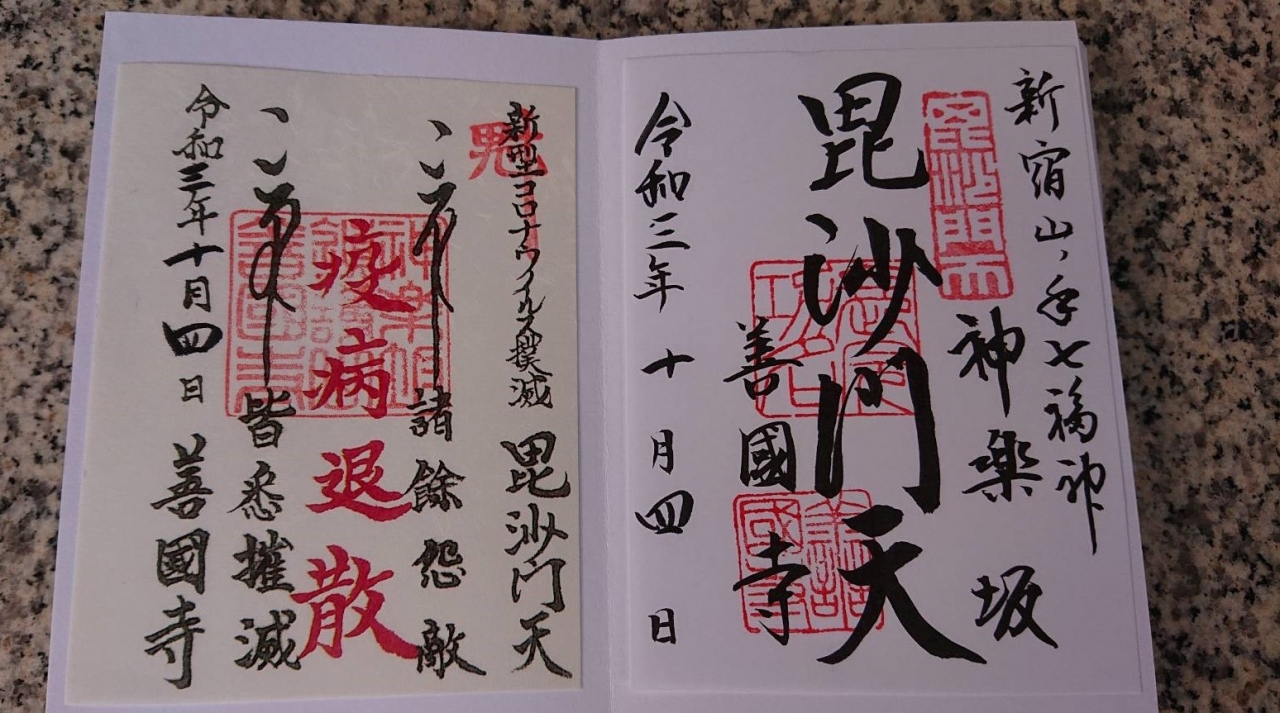 新宿山ノ手七福神
神楽坂
毘沙門天
毘沙門天
善國寺
令和三年十月四日
新型コロナウイルス撲滅
毘沙門天
諸餘怨敵
疫病退散
皆悉摧滅
令和三年十月四日
善國寺